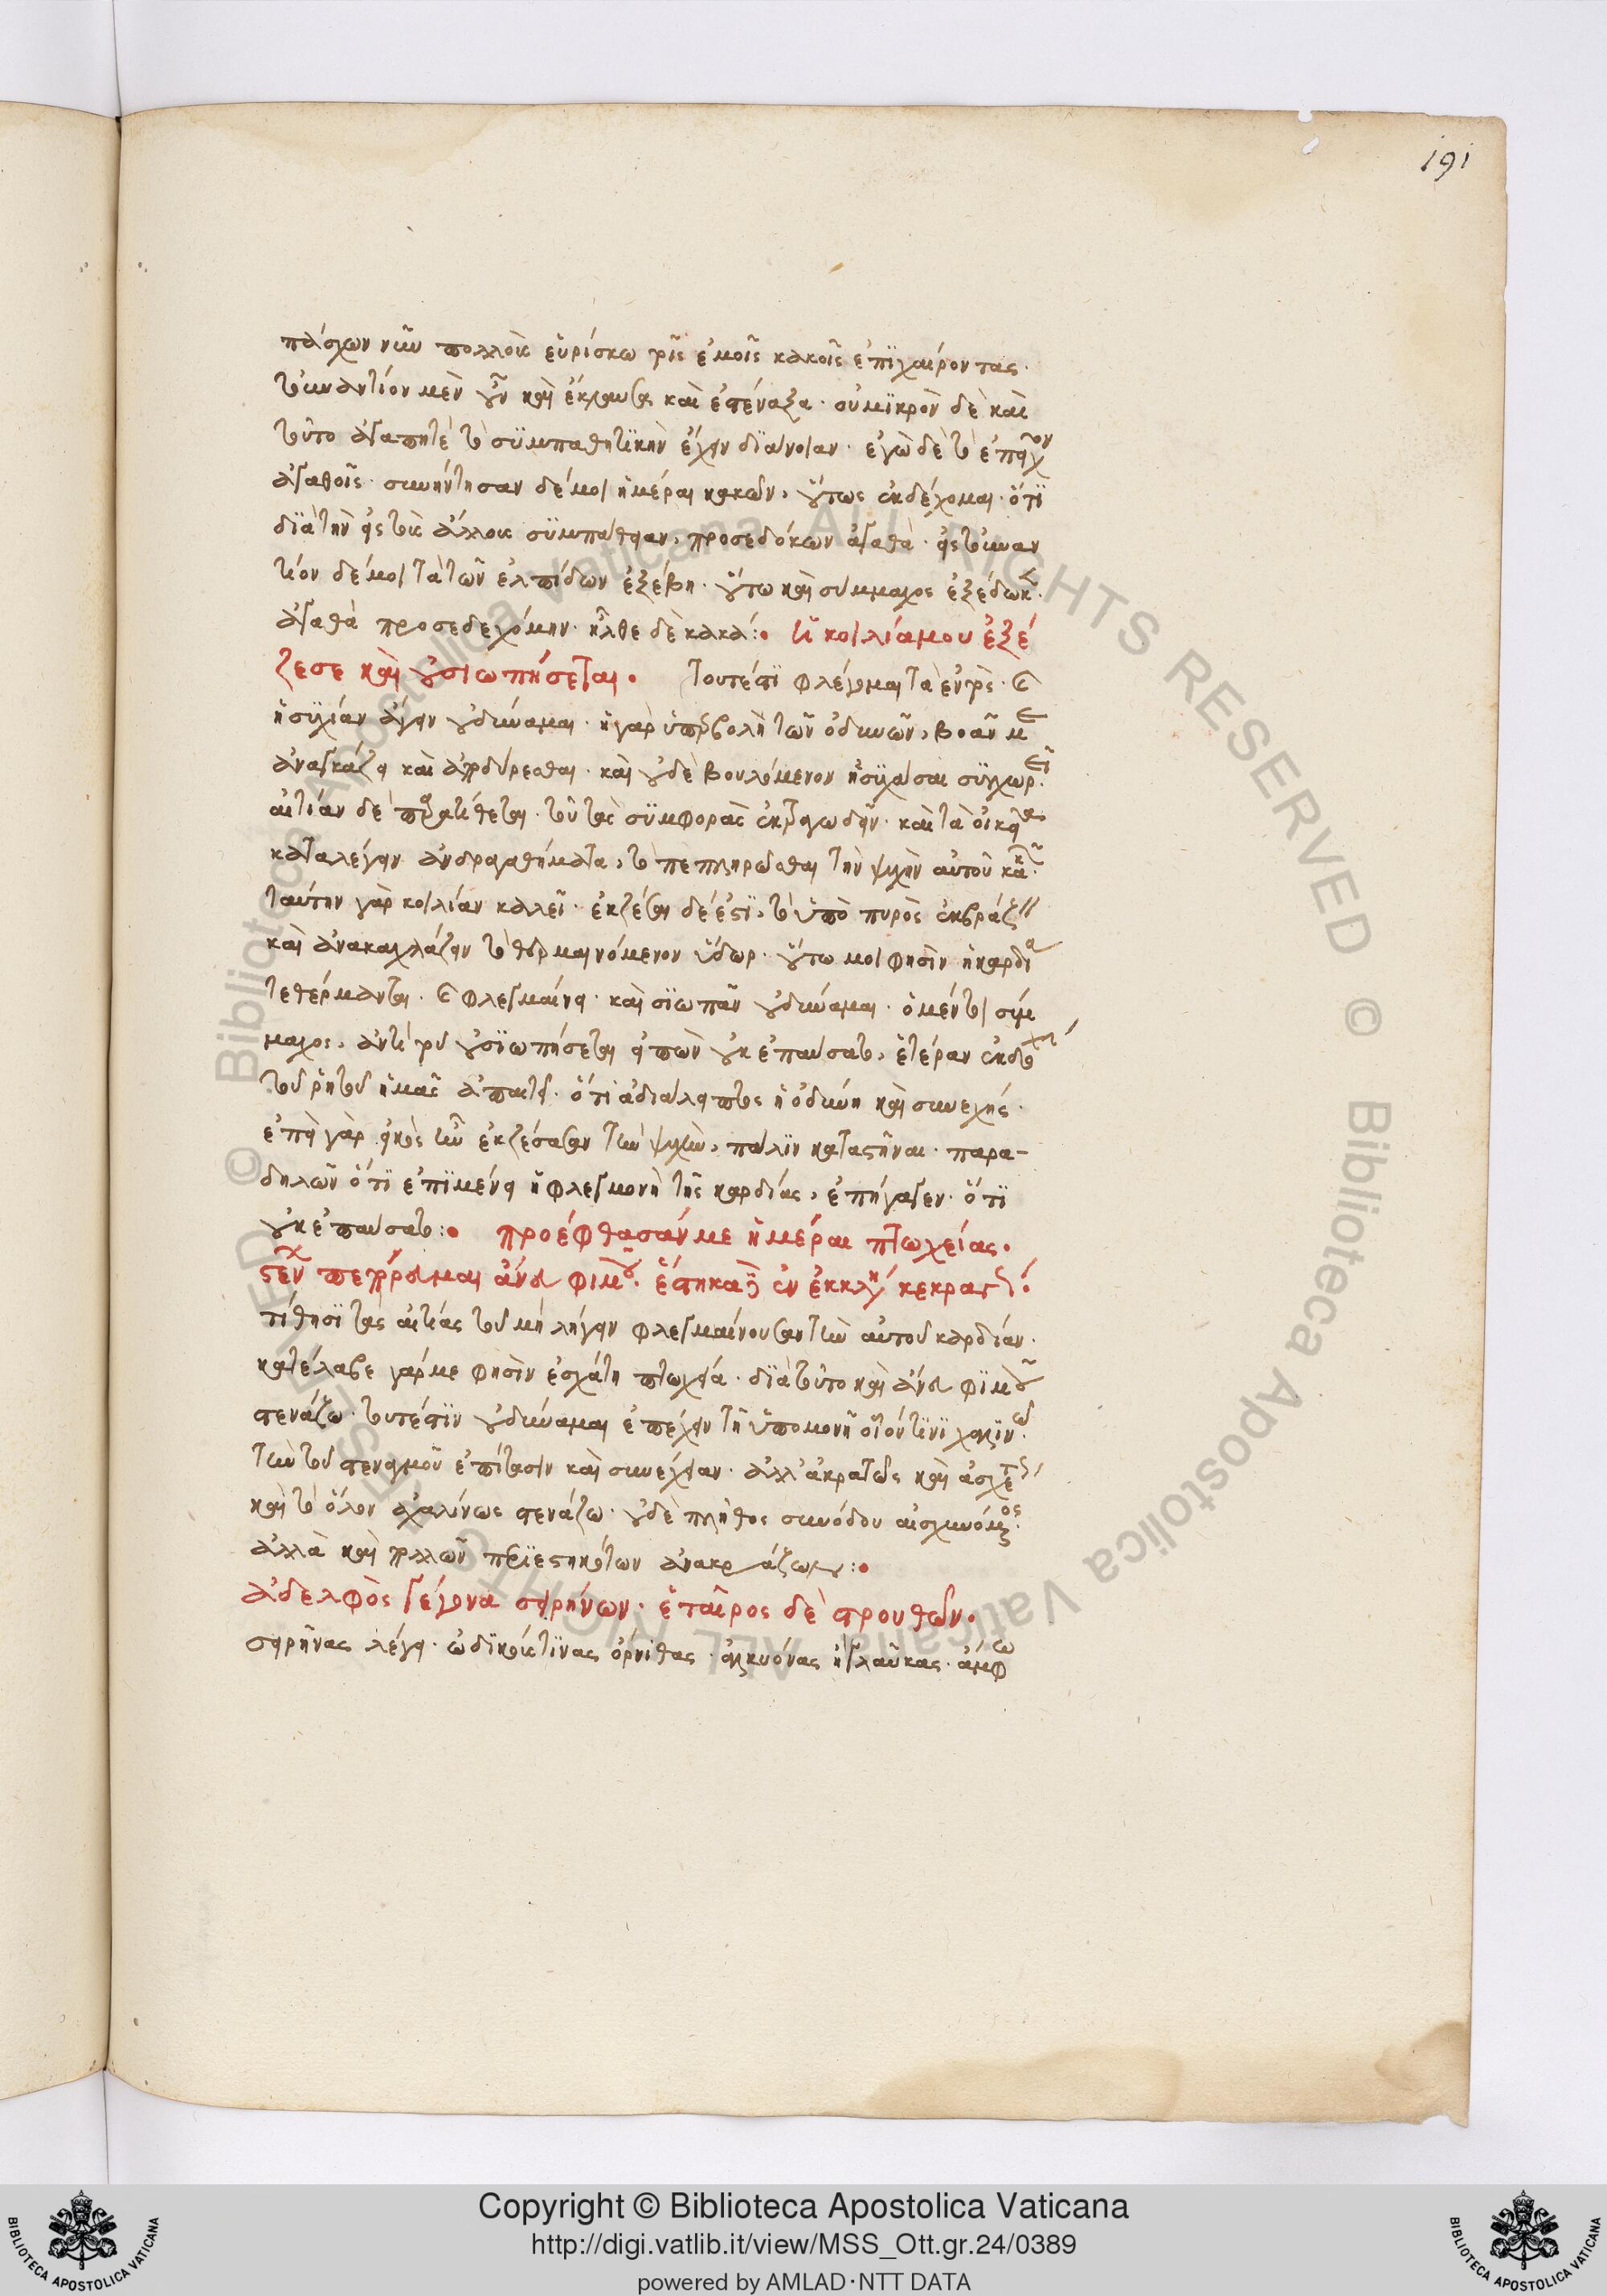 191
πάσχων νῦν πολλοὺς εὑρίσκω τοῖς ἐμοῖς κακοῖς ἐπϊχαίροντας·
τοὐναντίον μὲν οὖν καὶ ἔκλαυσα καὶ ἐστέναξα· οὐ μϊκρὸν δὲ καὶ
τοῦτο ἀγαπητὲ τὸ συμπαθητϊκὴν ἔχειν δϊάνοιαν· ἐγὼ δὲ τὸ ἐπέχων
ἀγαθοῖς· συνήντησαν δέ μοι ἡμέραι κακῶν, οὕτως ἐκδέχομαι· ὅτϊ
δϊὰ τὴν εἰς τοὺς ἄλλους συμπάθειαν, προσεδόκων ἀγαθὰ· εἰς τοὐναν
τίον δέ μοι τὰ τῶν ἐλπίδων ἐξέβη· οὕτω καὶ σύμμαχος ἐξέδωκε·
ἀγαθὰ προσεδεχόμην· ἦλθε δὲ κακά: ἡ κοιλία μου ἐξέ
ζεσε καὶ οὐ σιωπήσεται. Τουτέστϊ φλέγμαι τὰ ἐντὸς· καὶ
ἡσυχίαν ἄγειν οὐ δύναμαι· ἡ γὰρ ὑπερβολὴ τῶν ὀδυνῶν, βοᾶν με
ἀναγκάζει καὶ ἀποδύρεσθαι· καὶ οὐδὲ βουλόμενον ἡσυχάσαι συγχωρεῖ·
αἰτίαν δὲ προστίθεται· τοῦ τὰς συμφορὰς ἐκτραγωδεῖν· καὶ τὰ οἰκεῖα
καταλέγειν ἀνδραγαθήματα, τὸ πεπληρῶσθαι τὴν ψυχὴν αὐτοῦ κακῶν·
ταύτην γὰρ κοιλίαν καλεῖ· ἐκζέσαι δέ ἐστϊ, τὸ ὑπὸ πυρὸς ἐκβράζειν
καὶ ἀνακαχλάζειν τὸ θερμαινόμενον ὕδωρ· οὕτω μοι φησὶν ἡ καρδία
τεθέρμανται· καὶ φλεγμαίνει· καὶ σϊωπᾶν οὐ δύναμαι· ὁ μέντοι σύμ
μαχος, ἀντὶ τοῦ οὐ σϊωπήσεται εἰπὼν οὐκ ἐπαύσατο, ἑτέραν ἐκδοχὴν
τοῦ ῥητοῦ ἡμᾶς ἀπαιτεῖ· ὅτι ἀδιάλειπτος ἡ ὀδύνη καὶ συνεχής·
ἐπεὶ γὰρ εἰκὸς τὴν ἐκζέσασαν τὴν ψυχὴν, πάλϊν καταστῆναι· παρα-
δηλῶν ὅτϊ ἐπϊμένει ἡ φλεγμονὴ τῆς καρδίας, ἐπήγαγεν· ὅτϊ
οὐκ ἐπαύσατο: προέφθασάν με ἡμέραι πτωχείας.
στένων πεπόρευμαι ἄνευ φιμοῦ· ἕστηκα δὲ ἐν ἐκκλησίᾳ κεκραγώς:
τίθησϊ τὰς αἰτίας τοῦ μὴ λήγειν φλεγμαίνουσαν τὴν αὐτοῦ καρδίαν·
κατέλαβε γάρ με φησὶν ἐσχάτη πτωχεία· δϊὰ τοῦτο καὶ ἄνευ φϊμοῦ
στενάζω· τουτέστϊν οὐ δύναμαι ἐπέχειν τῆ ὑπομονῆ οἷόν τϊνϊ χαλϊνῶ·
τὴν τοῦ στεναγμοῦ ἐπίτασιν καὶ συνέχειαν· ἀλλ' ἀκρατῶς καὶ ἀσχέτως
καὶ τὸ ὅλον ἀχαλίνως στενάζω· οὐδὲ πλῆθος συνόδου αἰσχυνόμενος·
ἀλλὰ καὶ πολλῶν περϊεστηκότων ἀνακράζων:
ἀδελφὸς γέγονα σειρήνων· ἑταῖρος δὲ στρουθῶν.
σειρῆνας λέγει· ὠδϊκούς τϊνας ὄρνιθας· ἀλκυόνας ἢ γλαῦκας· ἄμφω
Copyright © Biblioteca Apostolica Vaticana
http://digi.vatlib.it/view/MSS_Ott.gr.24/0389
powered by AMLAD·NTT DATA
BIBLIOTECA APOSTOLICA VATICANA
BIBLIOTECA APOSTOLICA VATICANA